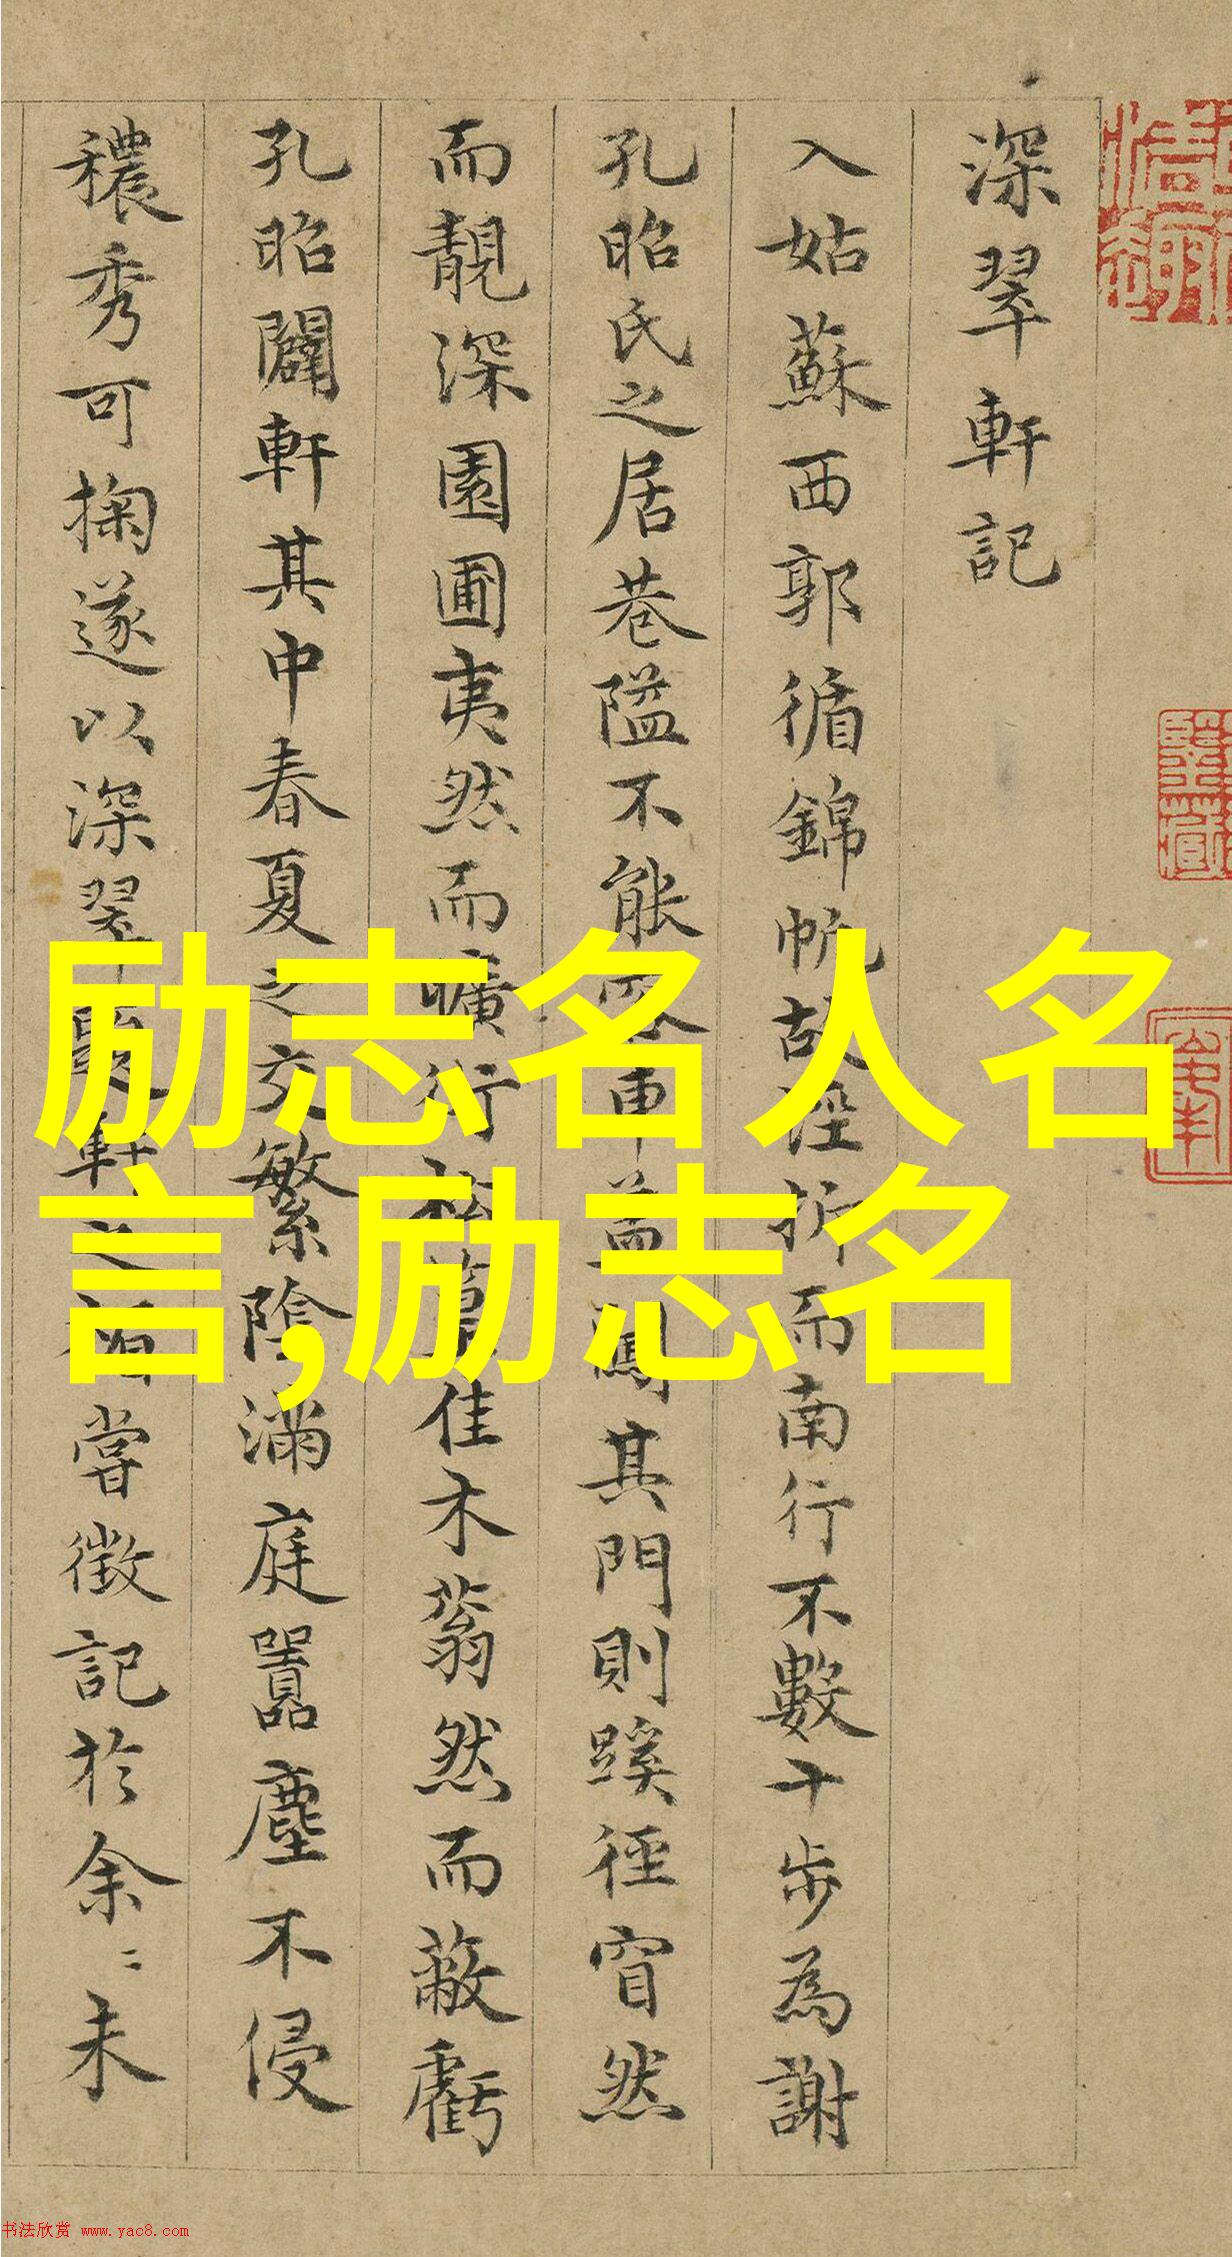 深翠軒記
入姑蘇西郭循錦帆故逕折而南行不數十步為謝
孔昭氏之居巷隘不能容車蓋闖其門則蹊徑窅然
而靚深園圃夷然而曠衍松篁佳木蓊然而蔽虧
孔昭闢軒其中春夏之交繁陰滿庭囂塵不侵
穠秀可掬遂以深翠題軒之楣嘗徵記於余〻未
励志名人名
言,励志名
书法欣赏 www.yac8.com